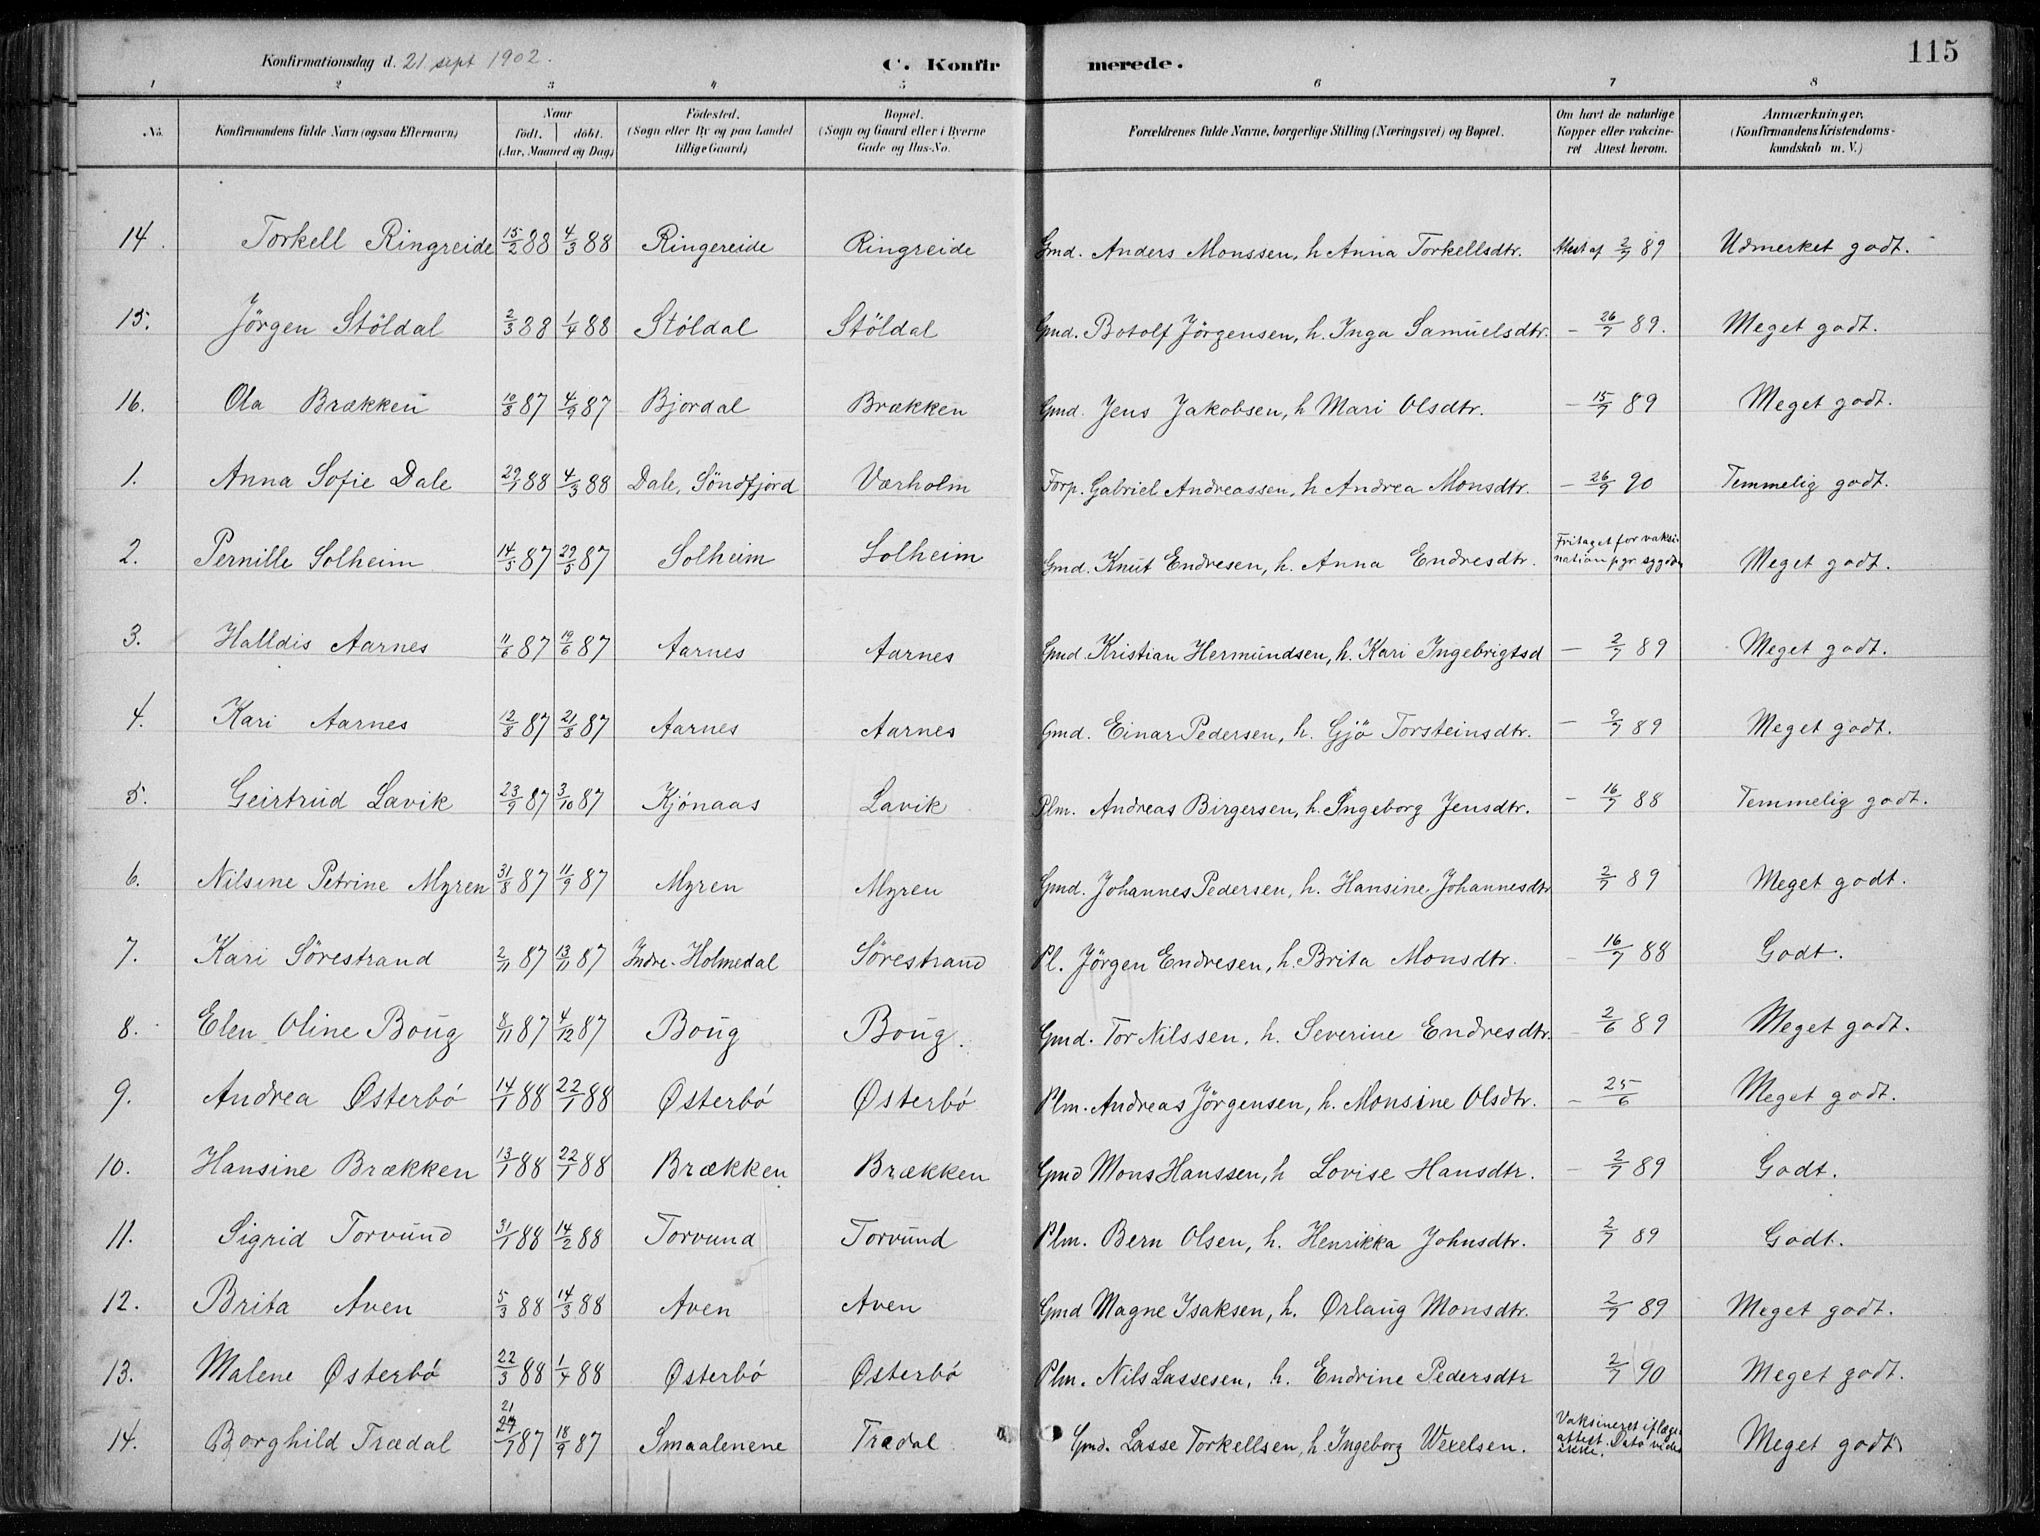 Konfirmationsdag d. 21 sept 1902. C. Konfirmerede. 115
1 2 3 4 5 6 7 8
No. Konfirmandens fulde Navn (ogsaa Efternavn) Naar födt. döbt. (Aar, Maaned og Dag) Födested. (Sogn eller By og paa Landet tillige Gaard) Bopæl. (Sogn og Gaard eller i Byerne Gade og Hus-No. Forældrenes fulde Navne, borgerlige Stilling (Næringsvei) og Bopæl. Om havt de naturlige Kopper eller vakcineret Attest herom. Anmærkninger. (Konfirmandens Kristendomskundskab m. V.)
14. Torkell Ringreide 15/2 88 4/3 88 Ringereide Ringreide Gmd. Anders Monssen, h Anna Torkellsdtr. Attest af 2/7 89 Udmerket godt.
15. Jörgen Stöldal 2/3 88 1/4 88 Stöldal Stöldal Gmd. Botolf Jörgensen, h. Inga Samuelsdtr. - 26/7 89. Meget godt.
16. Ola Brækken 10/8 87 4/9 87 Bjordal Brækken Gmd. Jens Jakobsen, h Mari Olsdtr. - 15/7 89 Meget godt.
1. Anna Sofie Dale 29/1 88 4/3 88 Dale, Söndfjord Værholm Forp. Gabriel Andreassen, h Andrea Monsdtr. - 26/9 90 Temmelig godt.
2. Pernille Solheim 14/5 87 29/5 87 Solheim Solheim Gmd. Knut Endresen, h. Anna Endresdtr. Fritaget for vaksination pgr. sygdom Meget godt.
3. Halldis Aarnes 11/6 87 19/6 87 Aarnes Aarnes Gmd. Kristian Hermundsen, h. Kari Ingebrigtsd - 2/7 89 Meget godt.
4. Kari Aarnes 12/8 87 21/8 87 Aarnes Aarnes Gmd. Einar Pedersen, h. Gjö Torsteinsdtr. - 2/7 89 Meget godt.
5. Geirtrud Lavik 23/9 87 3/10 87 Kjönaas Lavik Plm. Andreas Birgersen, h. Ingeborg Jensdtr. - 16/7 88 Temmelig godt.
6. Nilsine Petrine Myren 31/8 87 11/9 87 Myren Myren Gmd. Johannes Pedersen, h. Hansine Johannesdtr 2/7 89 Meget godt.
7. Kari Sörestrand 2/11 87 13/11 87 Indre-Holmedal Sörestrand Pl. Jörgen Endresen, h. Brita Monsdtr. - 16/7 88 Godt.
8. Elen Oline Boug 8/11 87 4/12 87 Boug Boug. Gmd. Tor Nilssen, h. Severine Endresdtr. - 2/6 89 Meget godt.
9. Andrea Østerbö 14/1 88 22/1 88 Østerbö Østerbö Plm. Andreas Jörgensen, h. Monsine Olsdtr. - 25/6 Meget godt.
10. Hansine Brækken 13/1 88 22/1 88 Brækken Brækken Gmd Mons Hanssen, h Lovise Hansdtr. - 2/7 89 Godt.
11. Sigrid Torvund 31/1 88 14/2 88 Torvund Torvund Plm. Bern Olsen, h. Henrikka Johnsdtr. 2/7 89 Godt.
12. Brita Aven 5/3 88 14/3 88 Aven Aven Gmd Magne Isaksen, h. Ørlaug Monsdtr. 2/7 89 Meget godt.
13. Malene Østerbö 22/3 88 1/4 88 Østerbö Østerbö Plm. Nils Lassesen, h. Endrine Pedersdtr 2/7 90 Meget godt.
14. Borghild Trædal 21/7 87 18/9 87 Smaalenene Trædal Gmd. Lasse Torkellsen, h. Ingeborg Wexelsen. Vaksineret if læges attest. Dato vides ikke. Meget godt